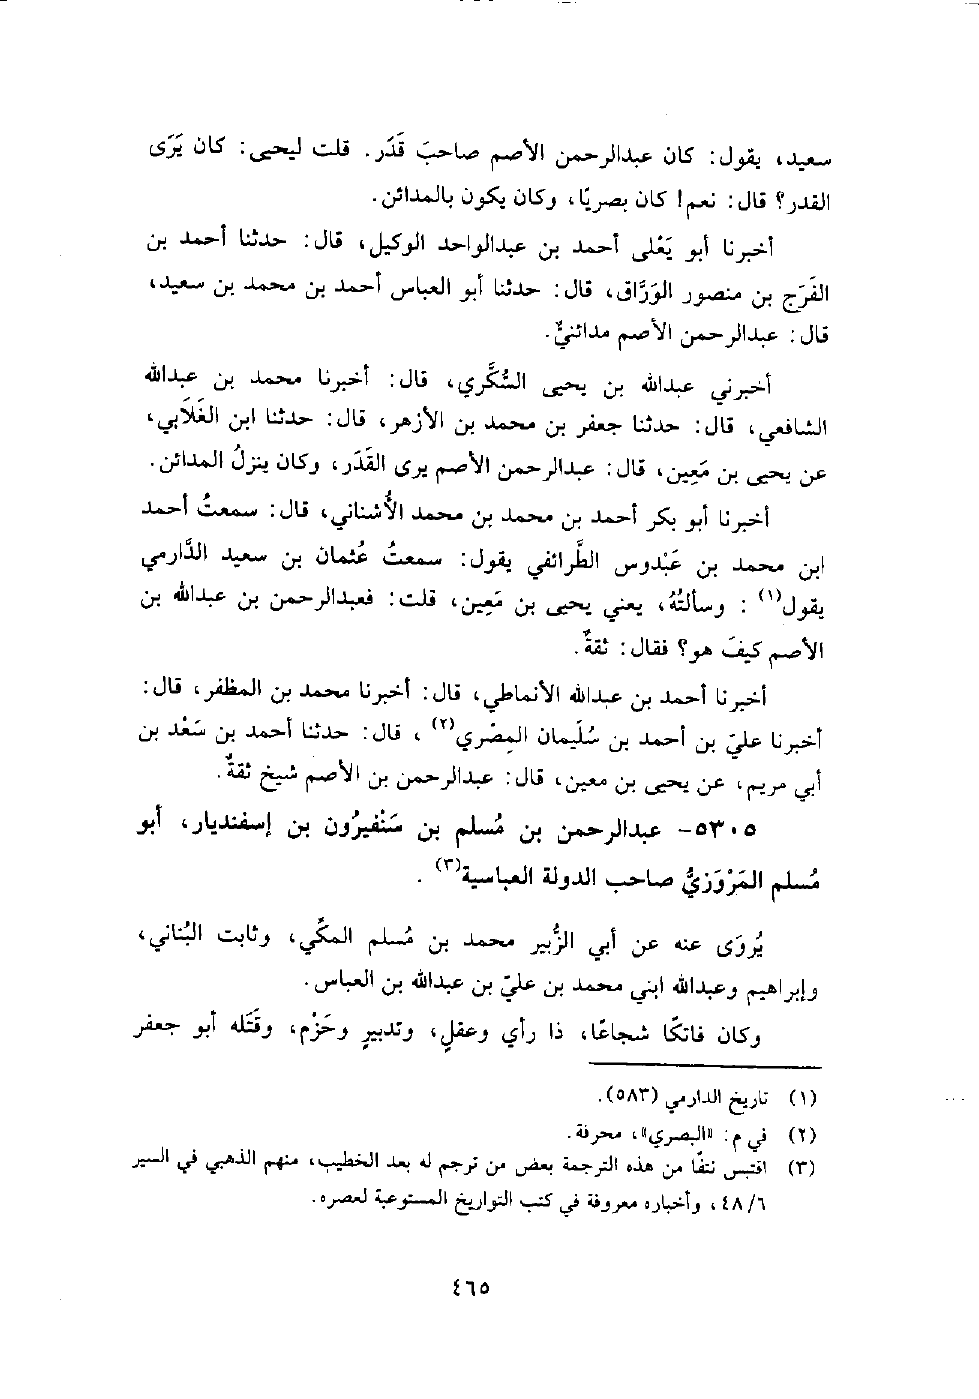 سعيد، يقول: كان عبدالرحمن الأصم صاحبَ قَدَر. قلت ليحيى: كان يَرَى
القدر؟ قال: نعم! كان بصريًا، وكان يكون بالمدائن.
أخبرنا أبو يَعْلى أحمد بن عبدالواحد الوكيل، قال: حدثنا أحمد بن
الفَرَج بن منصور الوَرَّاق، قال: حدثنا أبو العباس أحمد بن محمد بن سعيد،
قال: عبدالرحمن الأصم مدائنيٌّ.
أخبرني عبدالله بن يحيى السُّكَّري، قال: أخبرنا محمد بن عبدالله
الشافعي، قال: حدثنا جعفر بن محمد بن الأزهر، قال: حدثنا ابن الغَلَابي،
عن يحيى بن مَعِين، قال: عبدالرحمن الأصم يرى القَدَر، وكان ينزلُ المدائن.
أخبرنا أبو بكر أحمد بن محمد بن محمد الأُشناني، قال: سمعتُ أحمد
ابن محمد بن عَبْدوس الطَّرائفي يقول: سمعتُ عُثمان بن سعيد الدَّارمي
يقول(١): وسألتُهُ، يعني يحيى بن مَعِين، قلت: فعبدالرحمن بن عبدالله بن
الأصم كيفَ هو؟ فقال: ثقةٌ.
أخبرنا أحمد بن عبدالله الأنماطي، قال: أخبرنا محمد بن المظفر، قال:
أخبرنا عليّ بن أحمد بن سُلَيمان المِصْري(٢)، قال: حدثنا أحمد بن سَعْد بن
أبي مريم، عن يحيى بن معين، قال: عبدالرحمن بن الأصم شيخ ثقةٌ.
٥٣٠٥- عبدالرحمن بن مُسلم بن سَنْفيرُون بن إسفنديار، أبو
مُسلم المَرْوَزيُّ صاحب الدولة العباسية(٣).
يُروَى عنه عن أبي الزُّبير محمد بن مُسلم المكّي، وثابت البُناني،
وإبراهيم وعبدالله ابني محمد بن عليّ بن عبدالله بن العباس.
وكان فاتكًا شجاعًا، ذا رأي وعقلٍ، وتدبيرٍ وحَزْم، وقَتَله أبو جعفر
(١) تاريخ الدارمي (٥٨٣).
(٢) في م: «البصري»، محرفة.
(٣) اقتبس نتفًا من هذه الترجمة بعض من ترجم له بعد الخطيب، منهم الذهبي في السير
٤٨/٦، وأخباره معروفة في كتب التواريخ المستوعبة لعصره.
٤٦٥